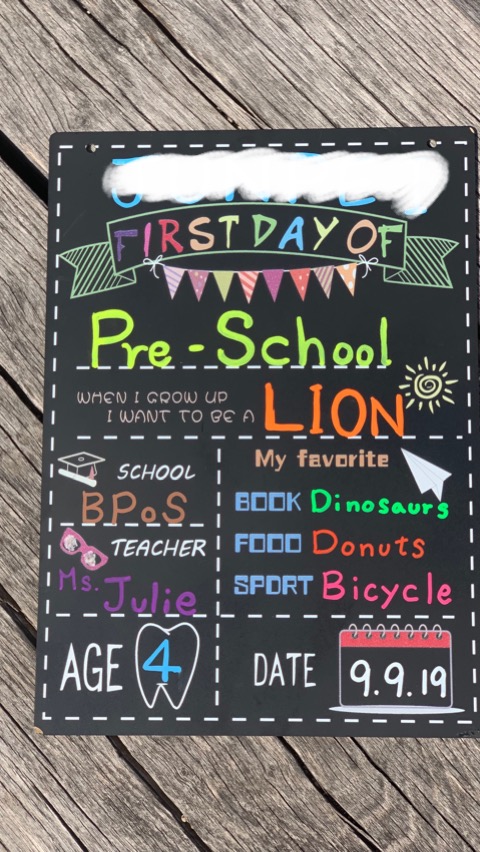 FIRST DAY OF
Pre-School
WHEN I GROW UP
I WANT TO BE A LION
SCHOOL
BPoS
TEACHER
Ms. Julie
My favorite
BOOK Dinosaurs
FOOD Donuts
SPORT Bicycle
AGE 4
DATE 9.9.19